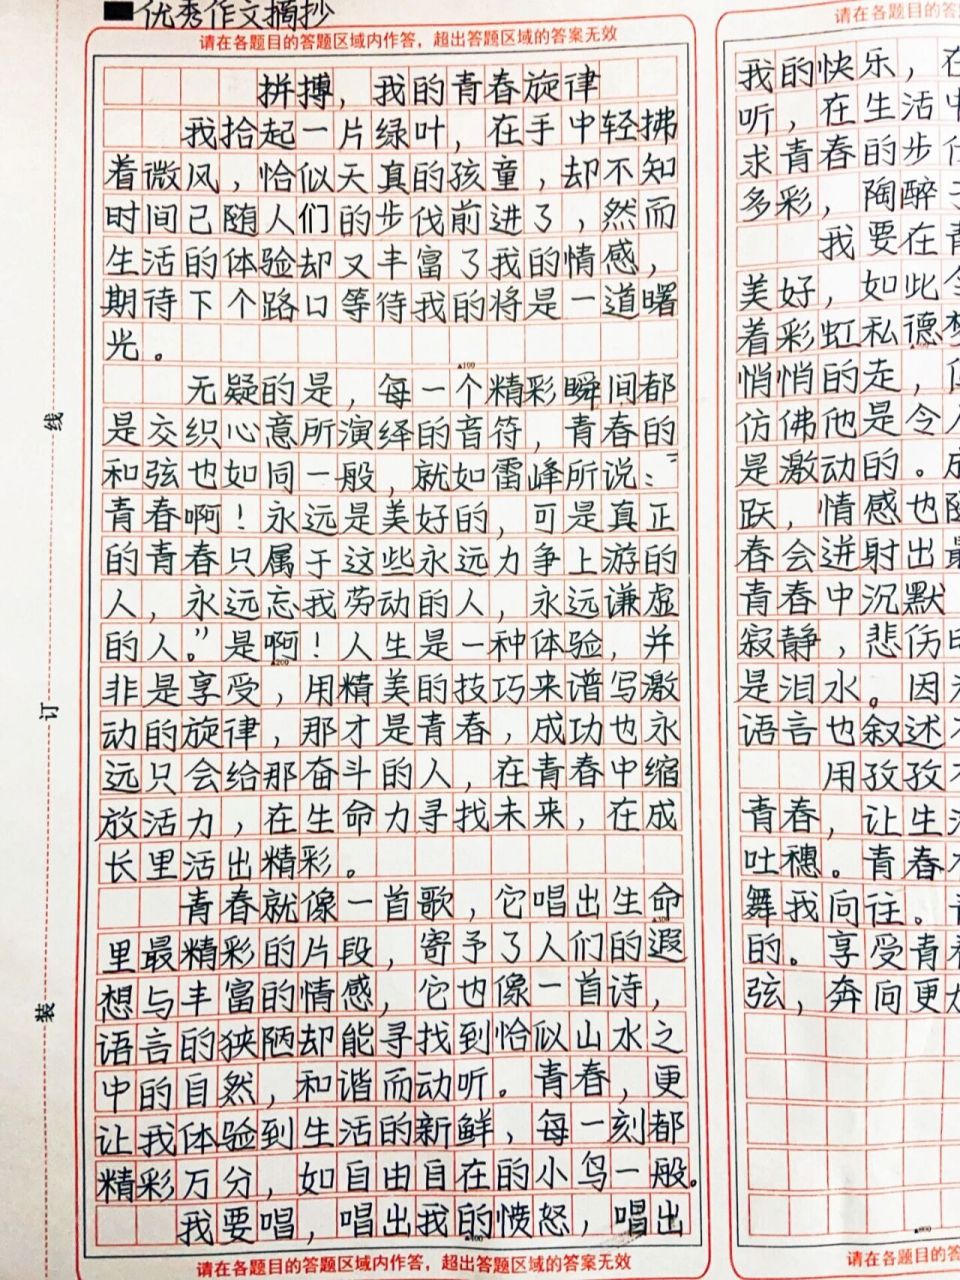 优秀作文摘抄
请在各题目的答题区域内作答，超出答题区域的答案无效
拼搏，我的青春旋律
我拾起一片绿叶，在手中轻拂
着微风，恰似天真的孩童，却不知
时间已随人们的步伐前进了，然而
生活的体验却又丰富了我的情感，
期待下个路口等待我的将是一道曙
光。
无疑的是，每一个精彩瞬间都
是交织心意所演绎的音符，青春的
和弦也如同一般，就如雷峰所说：“
青春啊！永远是美好的，可是真正
的青春只属于这些永远力争上游的
人，永远忘我劳动的人，永远谦虚
的人。”是啊！人生是一种体验，并
非是享受，用精美的技巧来谱写激
动的旋律，那才是青春，成功也永
远只会给那奋斗的人，在青春中缩
放活力，在生命力寻找未来，在成
长里活出精彩。
青春就像一首歌，它唱出生命
里最精彩的片段，寄予了人们的遐
想与丰富的情感，它也像一首诗，
语言的狭陋却能寻找到恰似山水之
中的自然，和谐而动听。青春，更
让我体验到生活的新鲜，每一刻都
精彩万分，如自由自在的小鸟一般。
我要唱，唱出我的愤怒，唱出
请在各题目的答题区域内作答，超出答题区域的答案无效
线
订
装
▲100
▲200
▲300
▲400
请在各题目的答
我的快乐，在
听，在生活中
求青春的步伐
多彩，陶醉于
我要在青
美好，如此令
着彩虹私德梦
悄悄的走，但
仿佛他是令人
是激动的。成
跃，情感也随
春会迸射出最
青春中沉默
寂静，悲伤时
是泪水。因为
语言也叙述不
用孜孜不
青春，让生活
吐穗。青春
舞我向往。青
的。享受青春
弦，奔向更
请在各题目的答